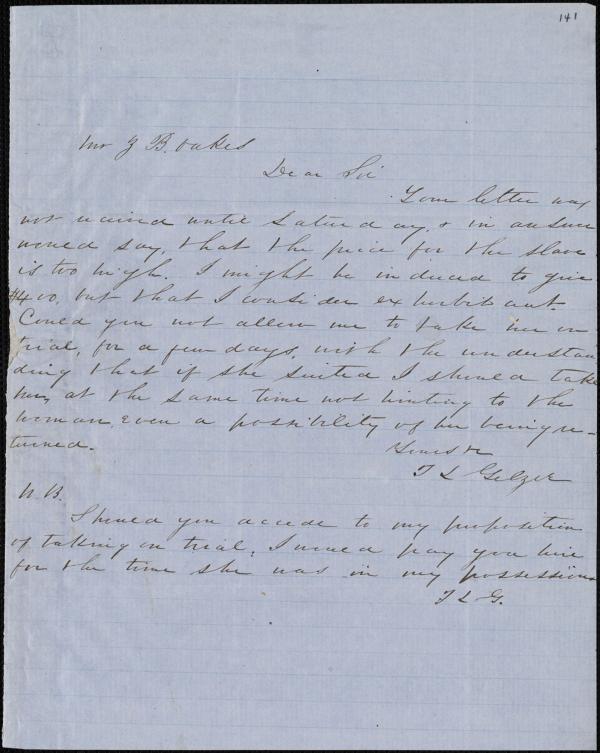 141
Mr Z B. Oakes
Dear Sir
Your letter was
not received until Saturday, & in answer
would say, that the price for the slave
is too high. I might be induced to give
$400, but that I consider exhorbitant.
Could you not allow me to take her on
trial, for a few days, with the understan
ding that if she suited I should take
her, at the same time not hinting to the
woman, even a possibility of her being re-
turned.
Yours &c
T L Gelzer
N. B.
Should you accede to my proposition
of taking on trial, I would pay you hire
for the time she was in my possession
T L G.